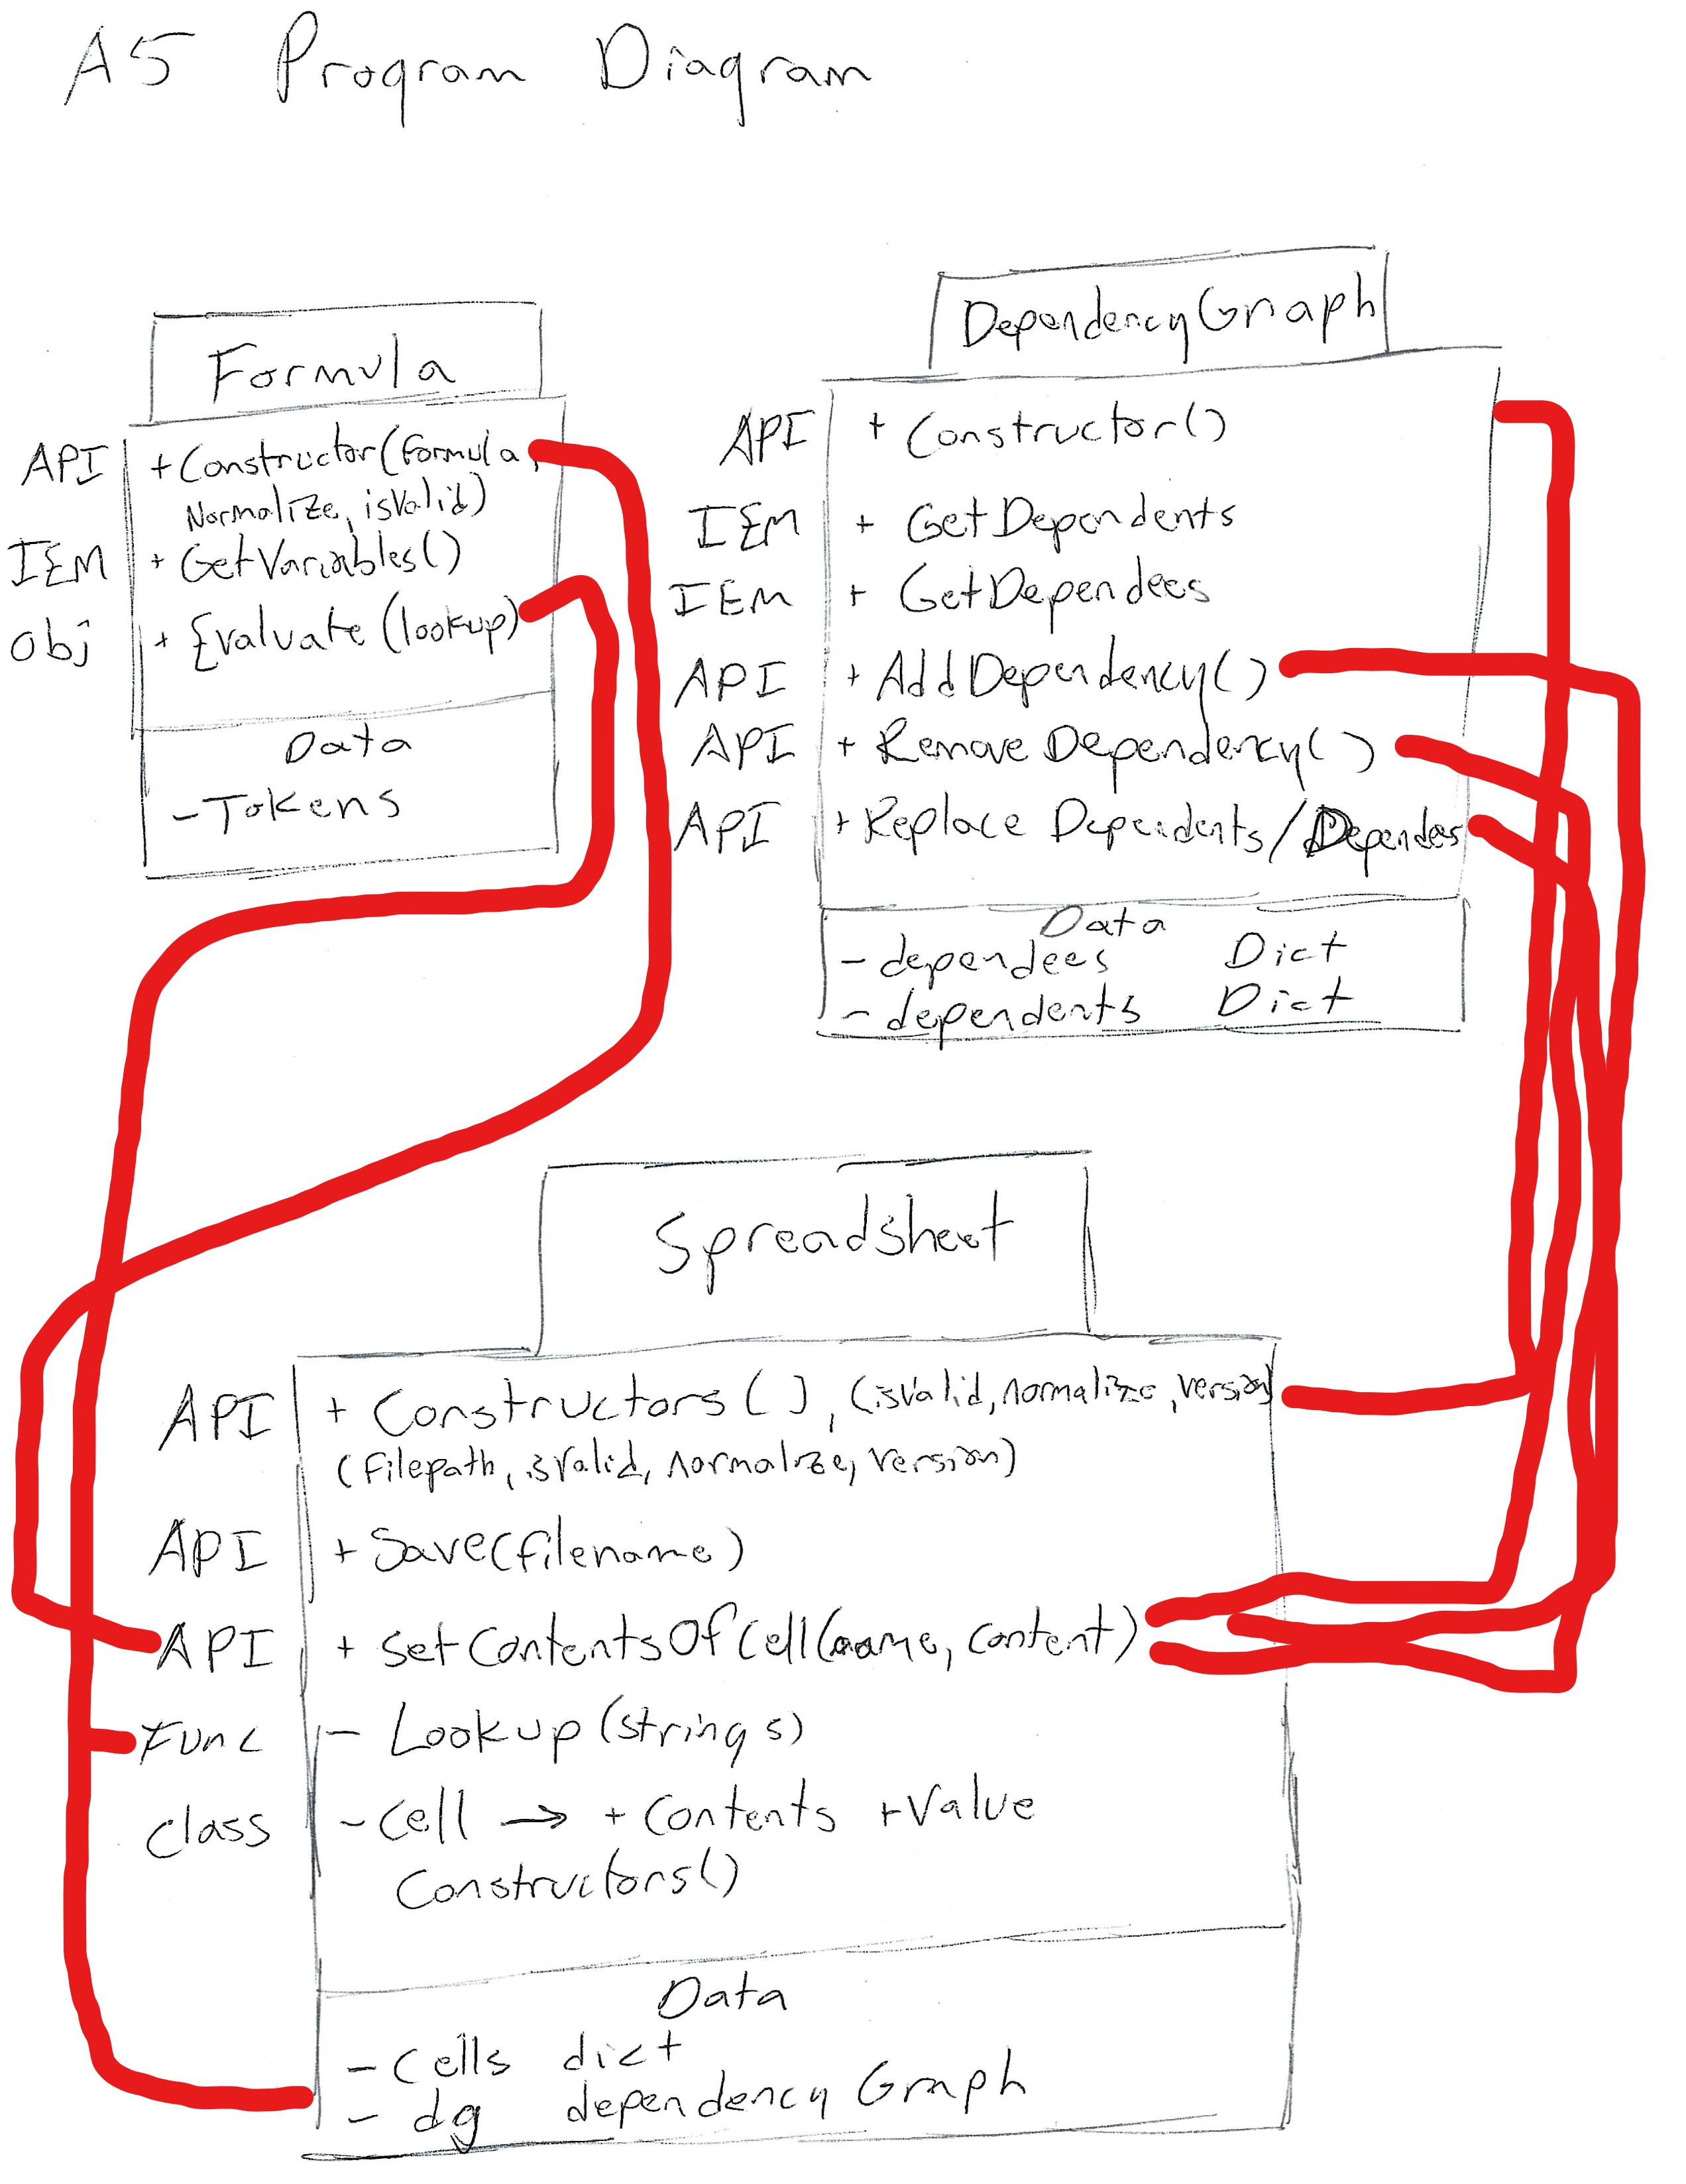 A5 Program Diagram
Formula
API + Constructor(Formula,
Normalize, isValid)
IEM + GetVariables()
Obj + Evaluate (lookup)
Data
- Tokens
DependencyGraph
API + Constructor()
IEM + GetDependents
IEM + GetDependees
API + AddDependency()
API + Remove Dependency()
API + Replace Dependents/Dependees
Data
- dependees Dict
- dependents Dict
Spreadsheet
API + Constructors (), (isValid, normalize, version)
(filepath, isValid, normalize, version)
API + Save(filename)
API + setContentsOfCell(name, content)
Func - Lookup (string s)
Class - Cell → + Contents + Value
Constructors()
Data
- Cells dict
- dg dependency Graph